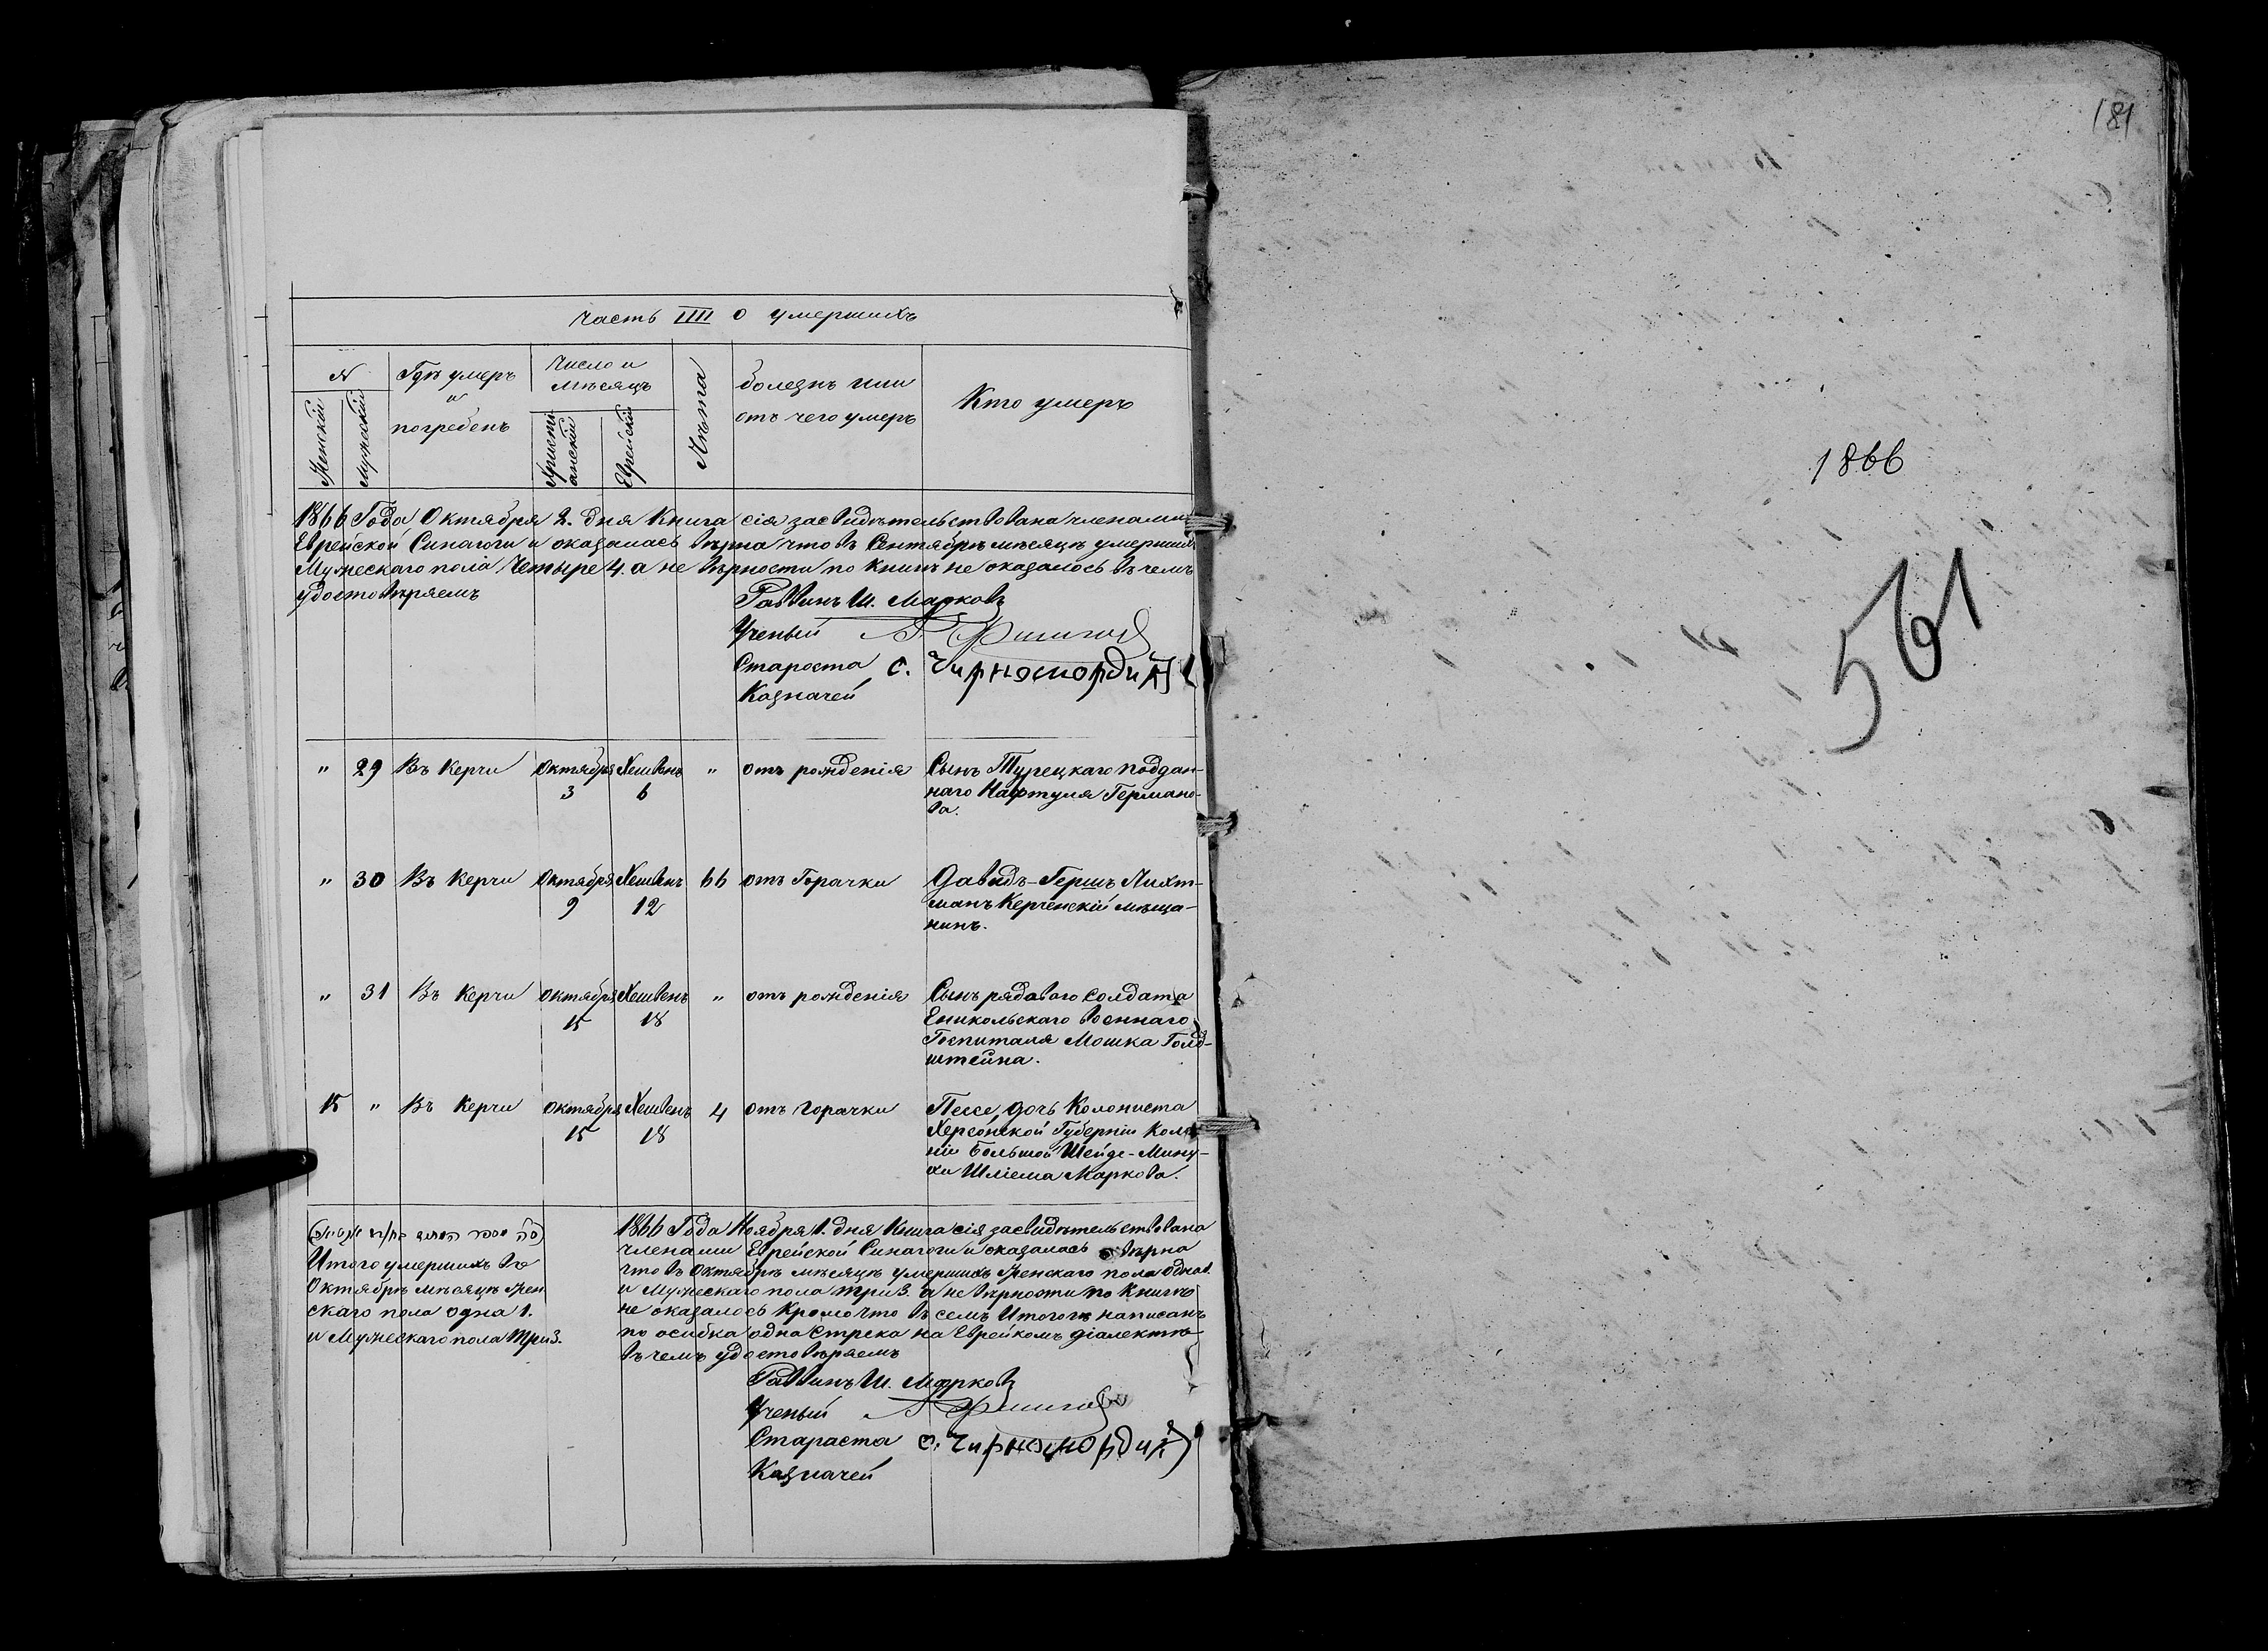 181
Часть IIII о умершихъ
№
Женскій
Мужескій
Гдѣ умеръ
и
погребенъ
Число и
мѣсяцъ
Христі
анскій
Еврейскій
Лѣта
болезнь или
отъ чего умеръ
Кто умеръ
1866 Года Октября 2. дня Книга сія засвидѣтельствована членами
Еврейской Синагоги и оказалась вѣрна что въ Сентябрѣ мѣсяцѣ умершихъ
Мужескаго пола Четыре 4. а не вѣрности по книгѣ не оказалось въ чемъ
удостовѣряемъ
Раввинъ Ш. Марковъ
Ученый
Староста С. Чирноморди
Казначей
" 29 Въ Керчи Октября Хешвень " отъ рожденія Сынъ Турецкаго поддан-
3 6 наго Нафтуля Германо-
ва.
" 30 Въ Керчи Октября Хешвень 66 отъ Горачки Давидъ-Гершъ Лихт-
9 12 манъ Керченскій мѣща-
нинъ.
" 31 Въ Керчи Октября Хешвень " отъ рожденія Сынъ рядавого Солдата
15 18 Еникольскаго военнаго
Госпиталя Мошка Голд-
штейна.
15 " Въ Керчи Октября Хешвень 4 отъ горачки Пессе, дочь Колониста
15 18 Херсонской Губерніи Коло
ніи Большой Шейде-Мину-
хи Шліема Маркова.
Итого умершихъ въ
Октябрѣ мѣсяцѣ Жен
скаго пола одна 1.
и Мужескаго пола Три 3.
1866 Года Ноября 1. дня Книга сія засвидѣтельствована
членами Еврейской Синагоги и оказалась вѣрна
что въ Октябрѣ мѣсяцѣ умершихъ Женскаго пола одна 1.
и Мужескаго пола три 3. а не вѣрности по Книгѣ
не оказалось Кромо что въ семъ Итогоѣ написанъ
по осибка одна Стрека на Еврейкомъ діалектѣ
въ чемъ удостовѣряемъ
Раввинъ Ш. Марковъ
Ученый
Стараста С. Чирноморди
Казначей
1866
561